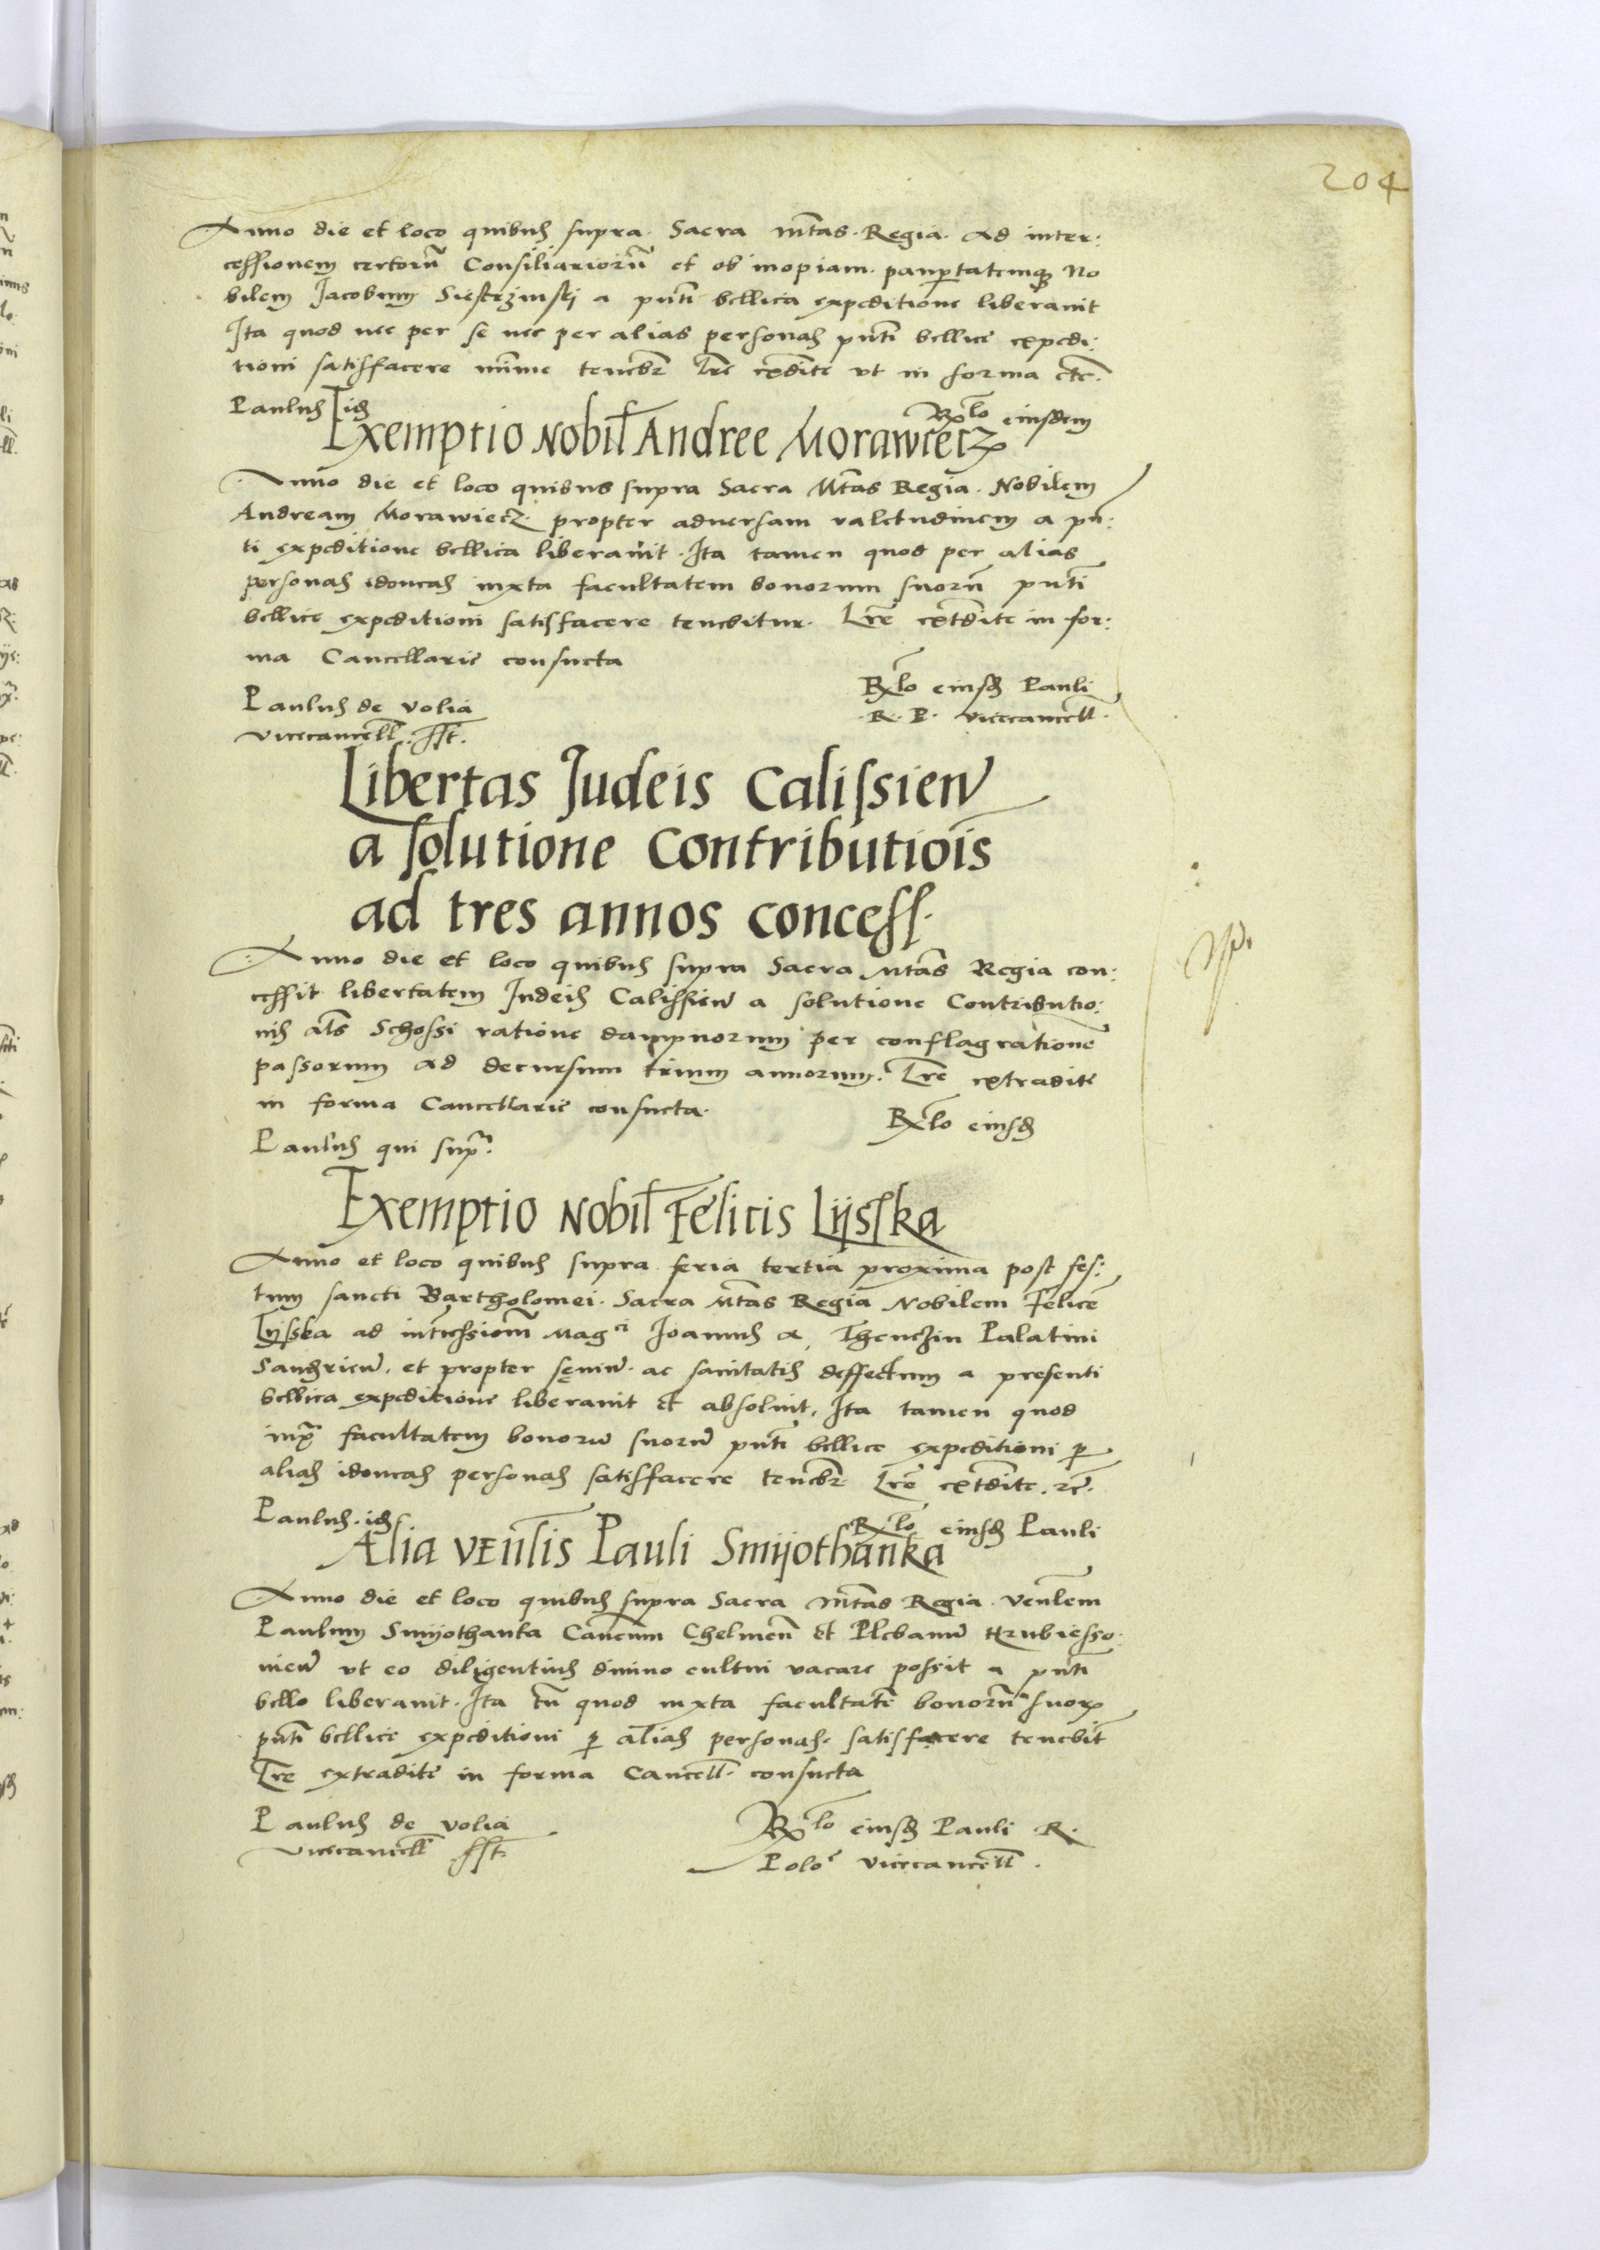 204
Anno die et loco quibus supra. Sacra Mtas. Regia. ad inter:
cessionem certoru Consiliarioru et ob inopiam. paupertatemque No
bilem Jacobum a pnti bellica expeditione liberavit
Ita quod nec per se nec per alias personas pnti bellice expedi:
tioni satisfacere mime tenebr Lre extdite ut in forma etc.
Paulus ids
Rlo eiusdem
Exemptio Nobil Andree Morawiecz
Anno die et loco quibus supra Sacra Mtas Regia. Nobilem
Andream Morawiecz. propter adversam valetudinem a pn:
ti expeditione bellica liberavit. Ita tamen quod per alias
personas idoneas iuxta facultatem bonorum suoru pnti
bellice expeditioni satisfacere tenebitur. Lre extdite in for:
ma Cancellarie consueta
Paulus de Volia
Vicecancell. sst.
Rlo eiusd Pauli
R. P. vicecancell.
Libertas Judeis Calissien
a solutione Contributiois
ad tres annos concess.
Anno die et loco quibus supra Sacra Mtas Regia con:
cessit libertatem Judeis Calissien a solutione Contributio:
nis als Schossi ratione dampnorum per conflagratione
passorum ad decursum trium annorum. Lre extradite
in forma Cancellarie consueta.
Rlo eiusd
Paulus qui supr.
Exemptio Nobil Felicis Lijsska
Anno et loco quibus supra feria tertia proxima post fes:
tum sancti Bartholomei. Sacra Mtas Regia Nobilem Felice
Lijsska ad intcessionem Magci Joannis a Thenczin Palatini
Sandricen. et propter seniu. ac sanitatis deffectum a presenti
bellica expeditione liberavit et absolvit. Ita tamen quod
iuxa facultatem bonoru suoru pnti bellice expeditioni p
alias idoneas personas satisfacere tenebr. Lre extdite. etc.
Paulus. ids
Rlo eiusd Pauli
Alia venlis Pauli Smijothanka
Anno die et loco quibus supra Sacra Mtas Regia. Venlem
Paulum Smijothanka Cancum Chelmen et Plebanu Hrubiesso.
vien ut eo diligentius divino cultui vacare possit a pnti
bello liberavit. Ita tn quod iuxta facultate bonoru suorum
pnti bellice expeditioni p alias personas. satisfacere tenebit
Lre extradite in forma Cancell. consueta
Paulus de Volia
Vicecancell sst.
Rlo eiusd Pauli R.
Polo vicecancell.